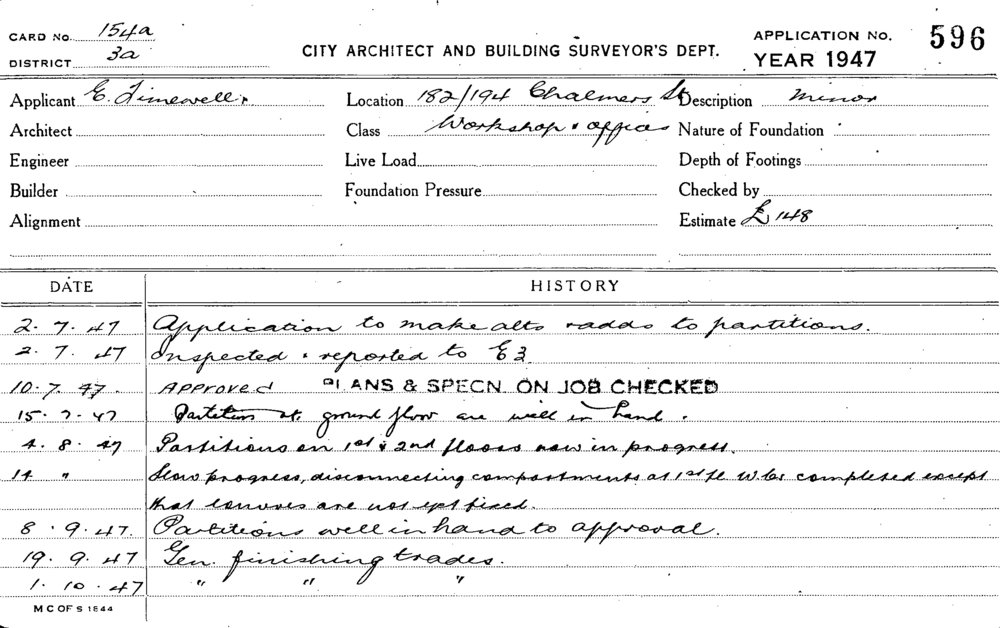 CARD No. 154a
DISTRICT 3a
CITY ARCHITECT AND BUILDING SURVEYOR'S DEPT.
APPLICATION NO. 596
YEAR 1947
Applicant E. Timewell. Location 182/194 Chalmers St Description minor
Architect Class Workshop & offices Nature of Foundation
Engineer Live Load Depth of Footings
Builder Foundation Pressure Checked by
Alignment Estimate £148
DATE HISTORY
2. 7. 47 Application to make alts & adds to partitions.
2. 7. 47 Inspected & reported to E3
10. 7. 47. Approved PLANS & SPECN. ON JOB CHECKED
15. 7. 47 Partitions at ground floor are well in hand.
4. 8. 47 Partitions on 1st & 2nd floors now in progress.
14 " Slow progress, disconnecting compartments at 1st fl W.Cs completed except
that louvres are not yet fixed.
8. 9. 47. Partitions well in hand to approval.
19. 9. 47 Gen. finishing trades.
1. 10. 47 " " "
M C OF S 1844